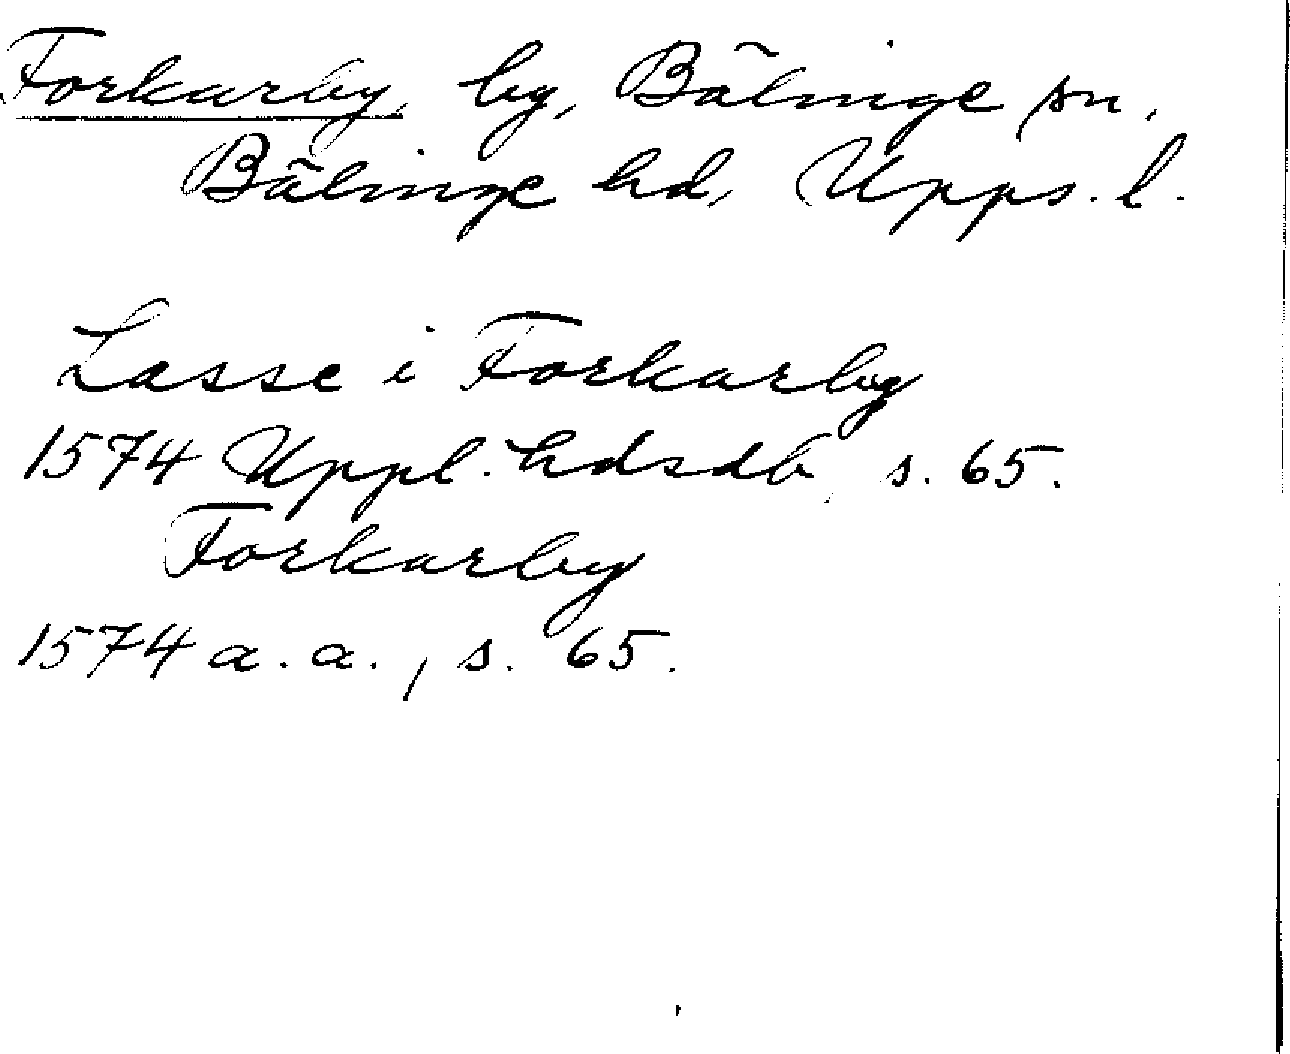 Forkarby, by, Bälinge sn.
Bälinge hd, Upps. l.
Lasse i Forkarby
1574 Uppl. hdsdb, s. 65.
Forkarby
1574 a. a., s. 65.